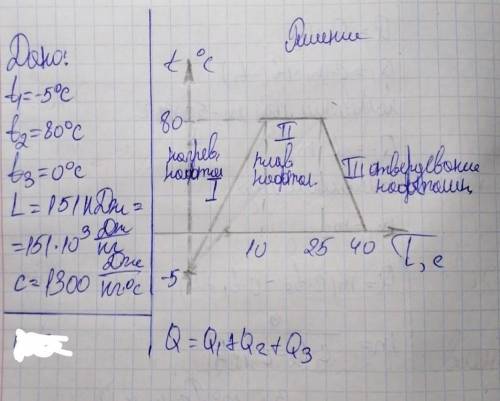 Дано:
t₁=-5°C
t₂=80°C
t₃=0°C
L=151кДж=
=151·10³ Дж/кг
c=1300 Дж/кг°C
Решение
t °C
80
нагрев.
нафтал
I
II
плав
нафтал.
III отвердевание
нафталин.
10
25
40
T, c
-5
Q=Q₁+Q₂+Q₃